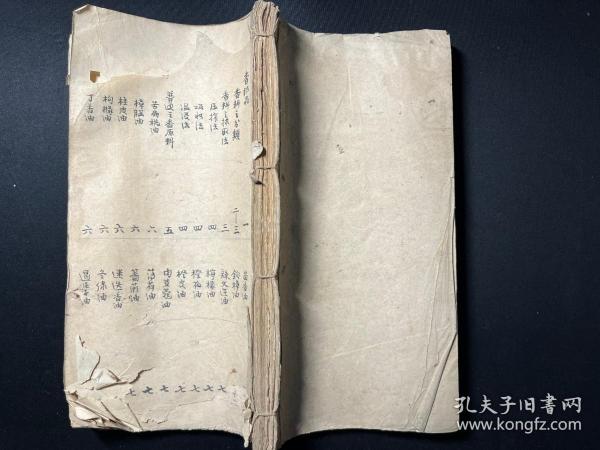 香料之分類 二—三
香料之採取法 三
压榨法 四
吸收法 四
溫浸法 四
普通之香原料 五
苦扁桃油 六
樟腦油 六
桂皮油 六
枸橼油 六
丁香油 六
茴香油
檸檬油 七
橙花油 七
橙皮油 七
肉荳蔻油 七
薄荷油 七
薔薇油 七
迷迭香油
冬綠油
孔夫子旧书网
www.kongfz.com